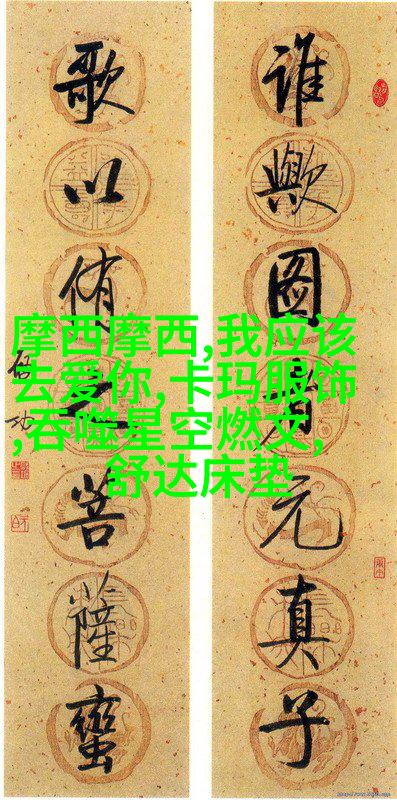 谁歟图者元真子
歌以侑之菩薩蠻
启功
摩西摩西,我应该
去爱你,卡玛服饰
,吞噬星空燃文,
舒达床垫